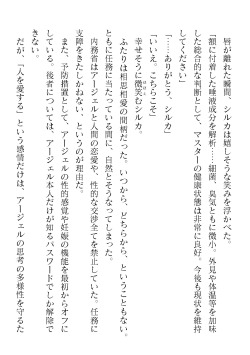 唇が離れた瞬間、シルカは嬉しそうな笑みを浮かべた。
「額に付着した唾液成分を解析……細菌、臭気ともに微小。外見や体温等を加味
した総合的な判断として、マスターの健康状態は非常に良好。今後も現状を維持
してください」
「……ありがとう、シルカ」
「いいえ、こちらこそ」
幸せそうに微笑むシルカ。
ふたりは相思相愛の間柄だった。いつから、どちらから、ということもない。
ともに任務に当たっている間に、自然とそうなってしまった。
内務省はアージェルと人間の恋愛や、性的な交渉全てを禁止していた。任務に
支障をきたしかねない、というのが理由だ。
また、予防措置として、アージェルの性的感覚や妊娠の機能を最初からオフに
している。後者については、アージェル本人だけが知るパスワードでしか解除で
きない。
だが、「人を愛する」という感情だけは、アージェルの思考の多様性を守るた